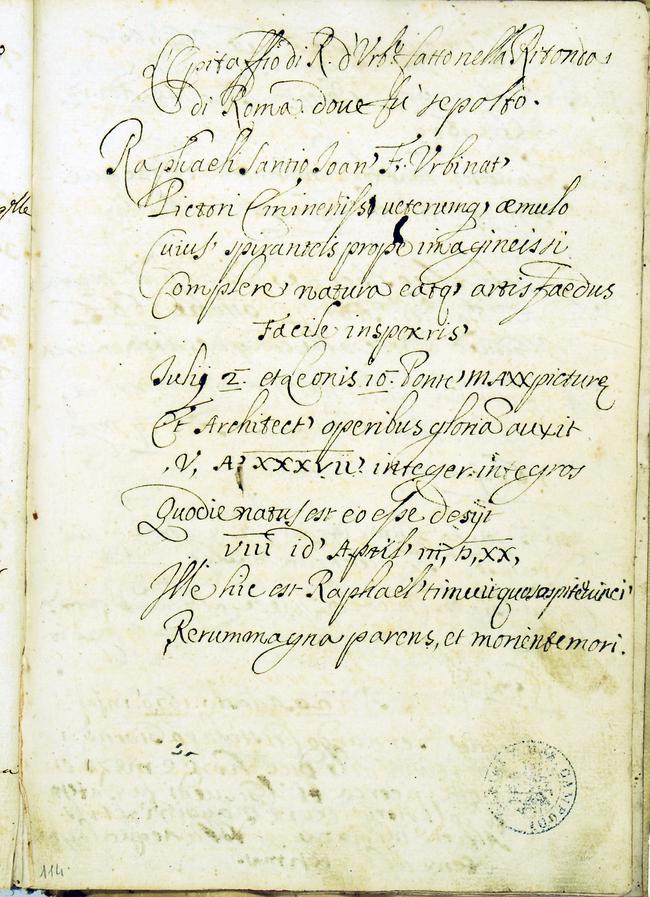 Epitaffio di R. d'Urb. fatto nella Ritonda
di Roma dove fu sepolto.
Raphaeli Santio Ioan' F. Urbinat'
Pictori Eminentiss' veterumq' æmulo
Cuius' spirantels prope imagineis si
Complere' natura eatq' artis faedus
Facile insperxris'
Iulij 2. et Leonis 10. Pont' MAXX picture
Et Architect' operibus gloria auxit
V, A' XXXVII' integer integros
Quo die natus est eo esse desijt
VIII id' April' m, D, XX,
Ille hic est Raphael' timuit quo sospite vinci
Rerum magna parens, et moriente mori.
114